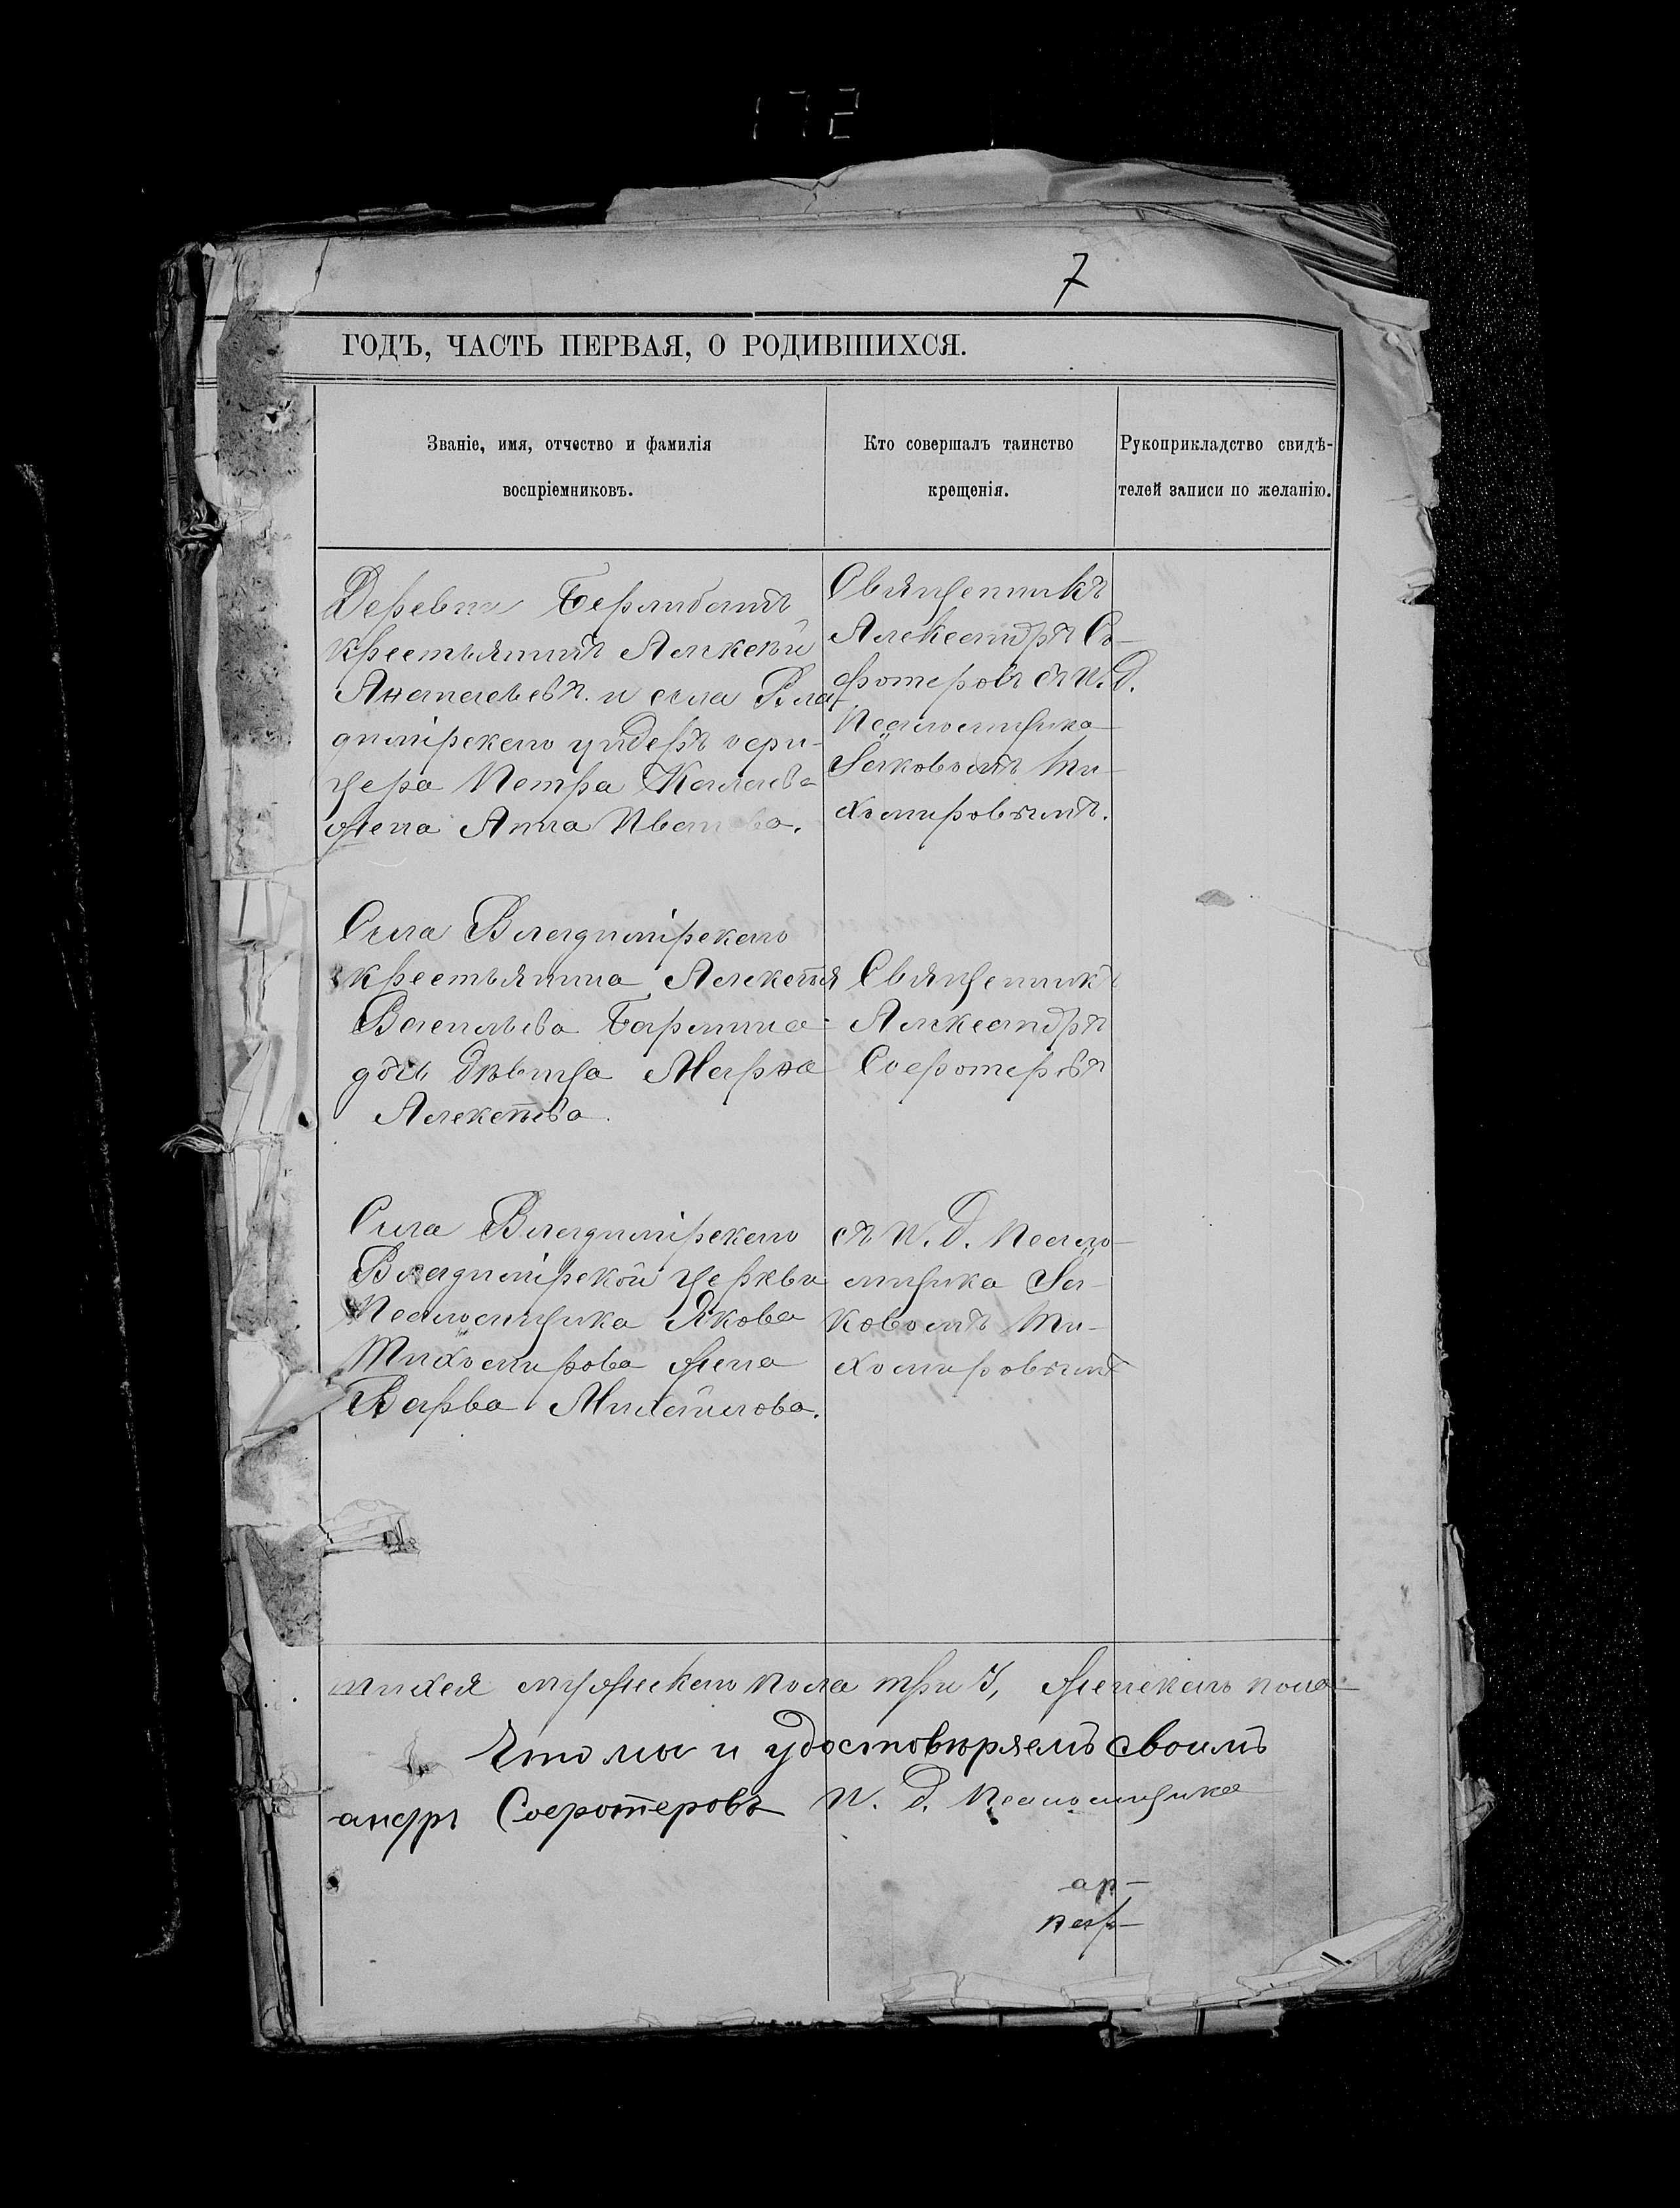 172
7
ГОДЪ, ЧАСТЬ ПЕРВАЯ, О РОДИВШИХСЯ.
Званіе, имя, отчество и фамилія
воспріемниковъ.
Кто совершалъ таинство
крещенія.
Рукоприкладство свидѣ-
телей записи по желанію.
Деревни
крестьянинъ Алексѣй
и села Вла-
димірскаго ундеръ офи-
цера Петра
жена Анна Иванова.
Священникъ
Александръ Со-
фотеровъ съ И. д.
Псаломщика
Іаковомъ Ти-
хомировымъ.
Села Владимірскаго
крестьянина Алексѣя
Васильева
дочь дѣвица Марѳа
Алексѣева.
Священникъ
Александръ
Софотеровъ
Села Владимірскаго
Владимірской церкви
Псаломщика Якова
Тихомирова жена
Варва Михайлова.
съ И. д. Псало-
мщика Іа-
ковомъ Ти-
хомировымъ
шихся мужескаго пола три 3, женскаго пола
Что мы и удостовѣряемъ своимъ
андръ Софотеровъ И. д. Псаломщика